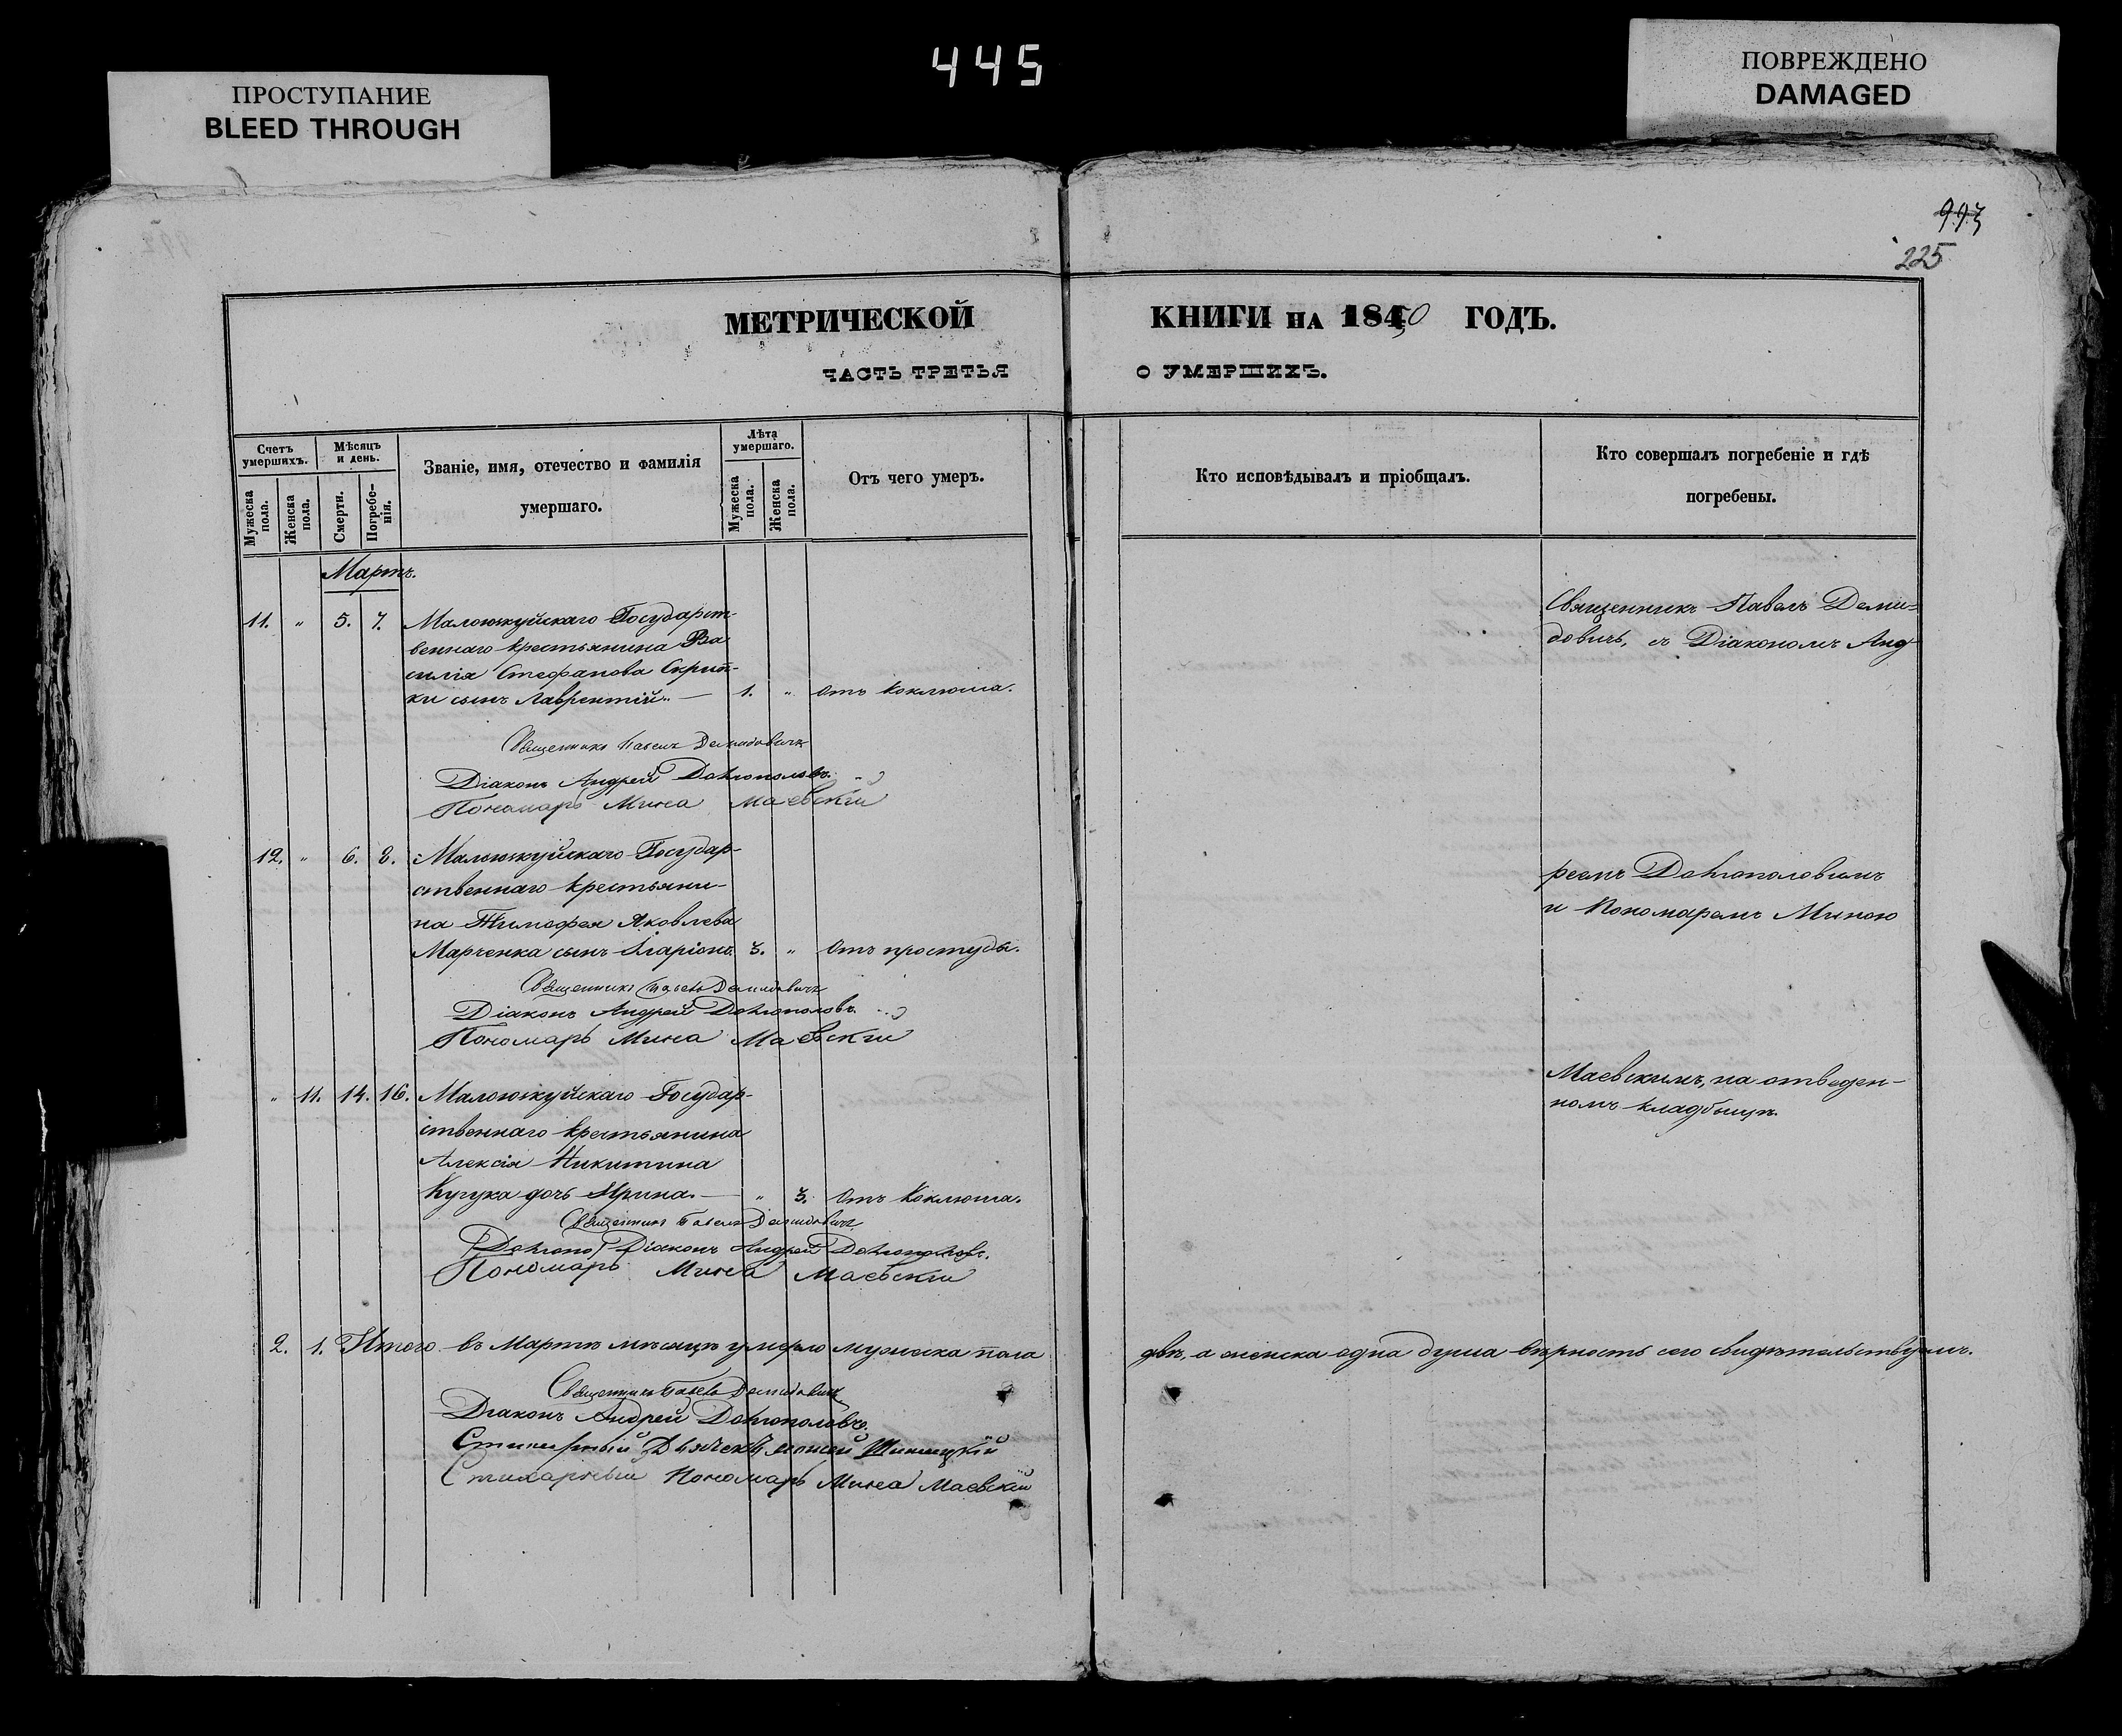 445
ПРОСТУПАНИЕ
BLEED THROUGH
ПОВРЕЖДЕНО
DAMAGED
993
225
МЕТРИЧЕСКОЙ
КНИГИ НА 1850 ГОДЪ.
ЧАСТЬ ТРЕТЬЯ
О УМЕРШИХЪ.
Счетъ умершихъ.
Мужеска пола.
Женска пола.
Мѣсяцъ и день.
Смерти.
Погребенія.
Званіе, имя, отечество и фамилія
умершаго.
Лѣта умершаго.
Мужеска пола.
Женска пола.
Отъ чего умеръ.
Кто исповѣдывалъ и пріобщалъ.
Кто совершалъ погребеніе и гдѣ
погребены.
Мартъ.
11. „ 5. 7. Малоюжуйскаго Государст-
веннаго крестьянина Ва
силія Стефанова Скрип-
ки сынъ Лаврентій. — 1. „ Отъ Коклюша.
Священникъ Павелъ Демидовичъ
Діаконъ Андрей Долгополовъ.
Пономарь Мина Маевскій
12. „ 6. 8. Малоюжуйскаго Государ-
ственнаго крестьяни-
на Тимофея Яковлева
Марченка сынъ Іларіонъ. 3. „ Отъ простуды.
Священникъ Павелъ Демидовичъ
Діаконъ Андрей Долгополовъ.
Пономарь Мина Маевскій
„ 11. 14. 16. Малоюжуйскаго Государ-
ственнаго крестьянина
Алексія Никитина
Кучука дочь Ирина. — „ 3. Отъ Коклюша.
Священникъ Павелъ Демидовичъ
Долгопо Діаконъ Андрей Долгополовъ.
Пономарь Мина Маевскій
Священникъ Павелъ Деми=
довичъ, съ Діакономъ Анд
реемъ Долгополовымъ
и Пономаремъ Миною
Маевскимъ, на отведен-
номъ кладбищѣ.
2. 1. Итого въ Мартѣ мѣсяцѣ умерло мужеска пола
двѣ, а женска одна душа вѣрность сего свидѣтельствуемъ.
Священникъ Павелъ Демидовичъ
Діаконъ Андрей Долгополовъ.
Дьячекъ
Стихарный Пономарь Мина Маевскій